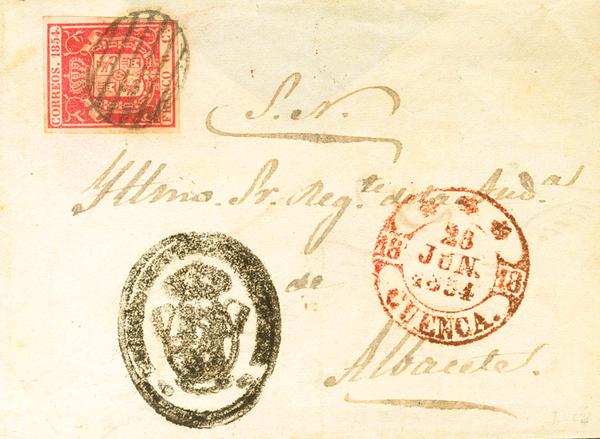 CORREOS. 1854.
FRANCO 6 Cs
S. N.
Yllmo. Sr. Reg.te de la Aud.as
de
Albacete.
18 18
28
JUN.
1854
CUENCA.